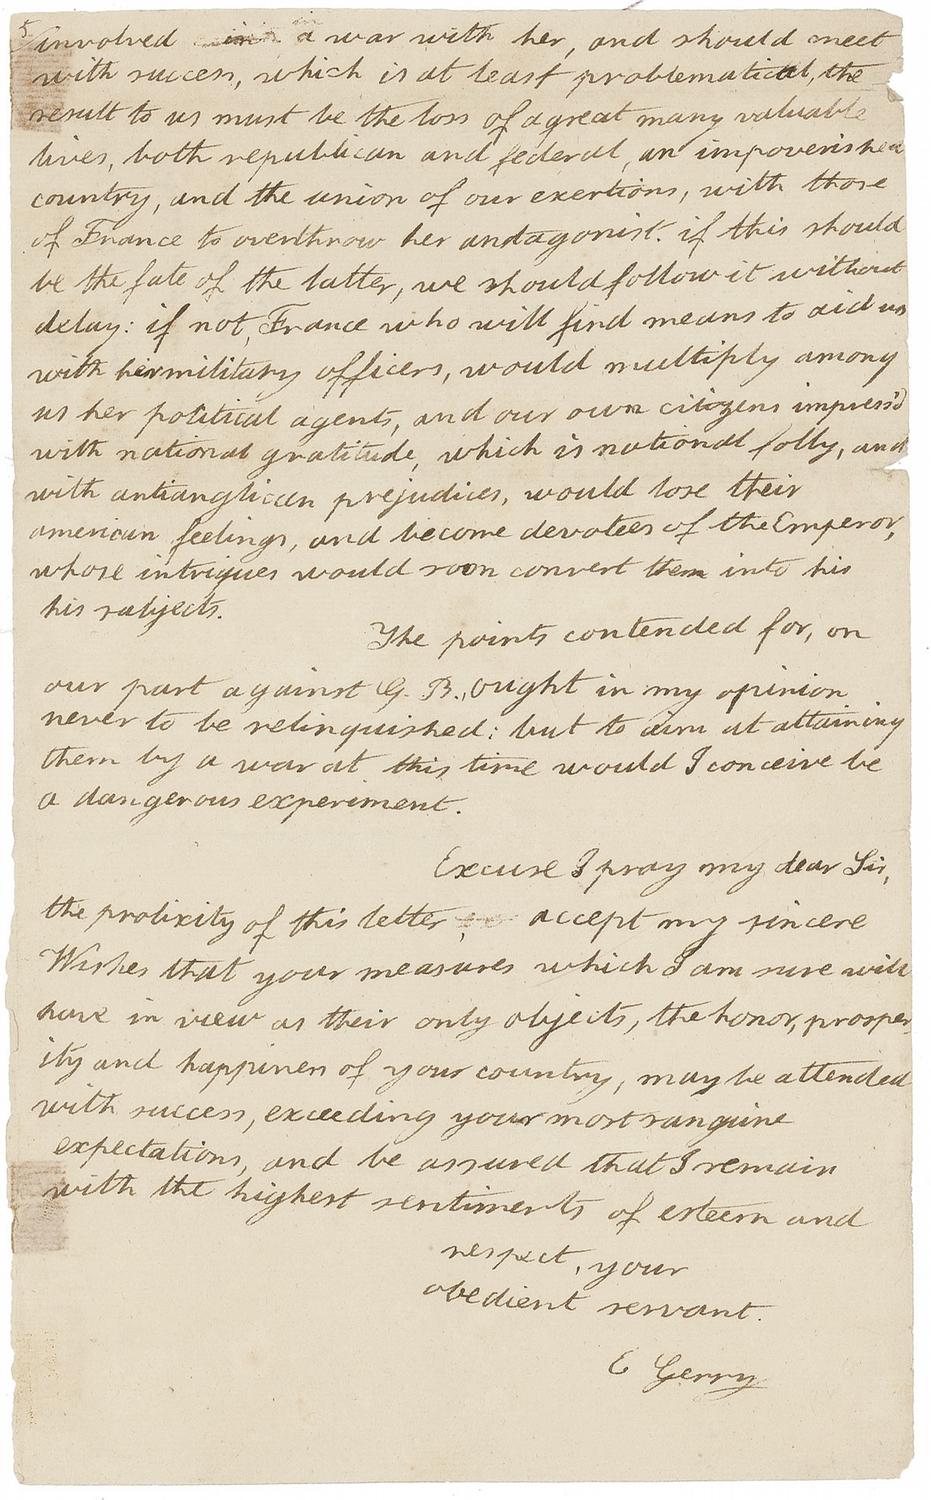 5
in
involved in a war with her, and should meet
with success, which is at least problematical, the
result to us must be the loss of a great many valuable
lives, both republican and federal, an impoverished
country, and the union of our exertions, with those
of France to overthrow her andtagonist. if this should
be the fate of the latter, we should follow it without
delay: if not, France who will find means to aid us
with her military officers, would multiply among
us her political agents, and our own citizens impress'd
with national gratitude, which is national folly, and
with antianglican prejudices, would lose their
american feelings, and become devotees of the Emperor,
whose intrigues would soon convert them into his
his subjects.
The points contended for, on
our part against G. B., ought in my opinion
never to be relinquished: but to aim at attaining
them by a war at this time would I conceive be
a dangerous experiment.
Excuse I pray my dear Sir,
the prolixity of this letter, accept my sincere
Wishes that your measures which I am sure will
have in view as their only objects, the honor, prosper
ity and happiness of your country, may be attended
with success, exceeding your most sanguine
expectations, and be assured that I remain
with the highest sentiments of esteem and
respect, your
obedient servant.
E Gerry